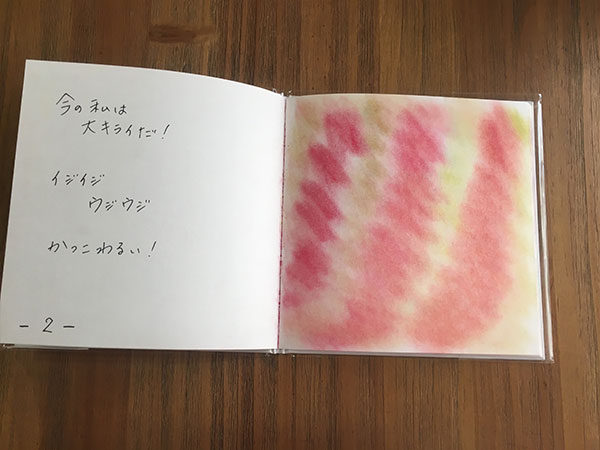 今の私は
大キライだ!
イジイジ
ウジウジ
かっこわるい!
- 2 -